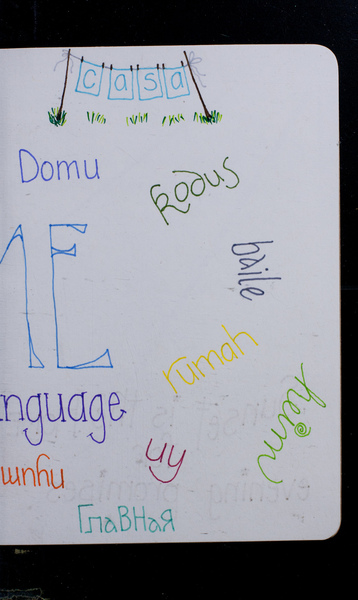 casa
Domu
kodus
baile
ME
rumah
nguage
heim
uy
шпһу
Главная